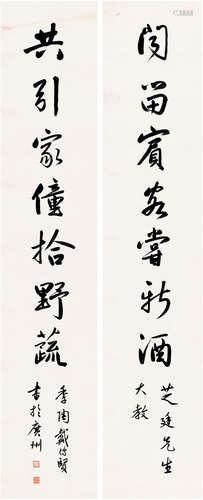 閒留賓客嘗新酒
芝廷先生
大教
共引家僮拾野蔬
季陶戴傳賢
書於廣州